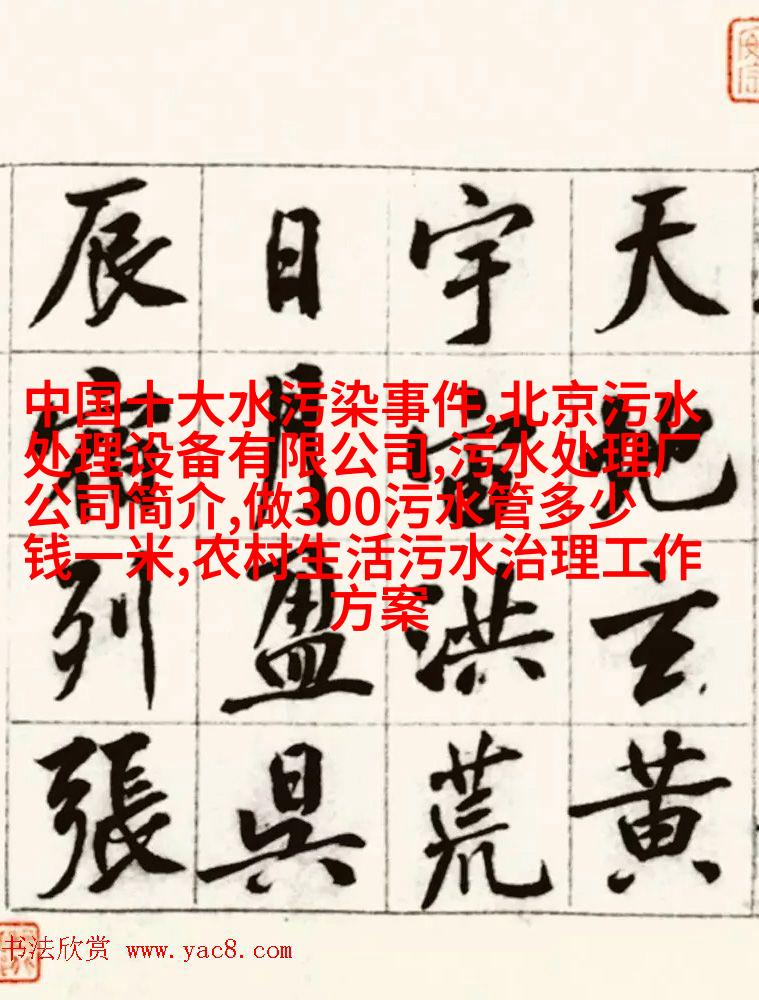 天地玄黄
宇宙洪荒
日月盈昃
辰宿列張
中国十大水污染事件,北京污水
处理设备有限公司,污水处理厂
公司简介,做300污水管多少
钱一米,农村生活污水治理工作
方案
书法欣赏 www.yac8.com